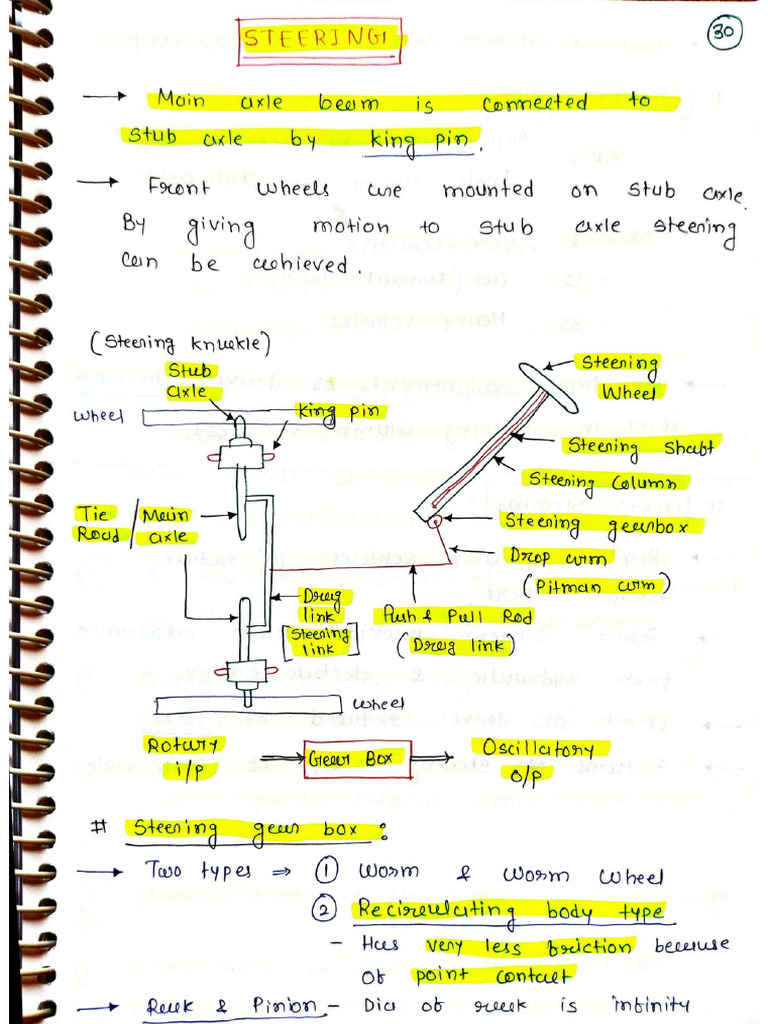 STEERING
30
→ Main axle beam is connected to
stub axle by king pin.
→ Front wheels are mounted on stub axle.
By giving motion to stub axle steering
can be achieved.
(Steering knuckle)
Stub
axle
wheel
king pin
Steering
Wheel
Steering Shaft
Steering Column
Steering gearbox
Drop arm
(Pitman arm)
Tie / Main
Road / axle
Drag
link
[Steering
link]
Push & Pull Rod
(Drag link)
wheel
Rotary
i/p
⇒ Gear Box ⇒
Oscillatory
o/p
# Steering gear box :
→ Two types ⇒ ① Worm & Worm Wheel
② Recirculating body type
- Has very less friction because
of point contact
→ Rack & Pinion - Dia of rack is infinity